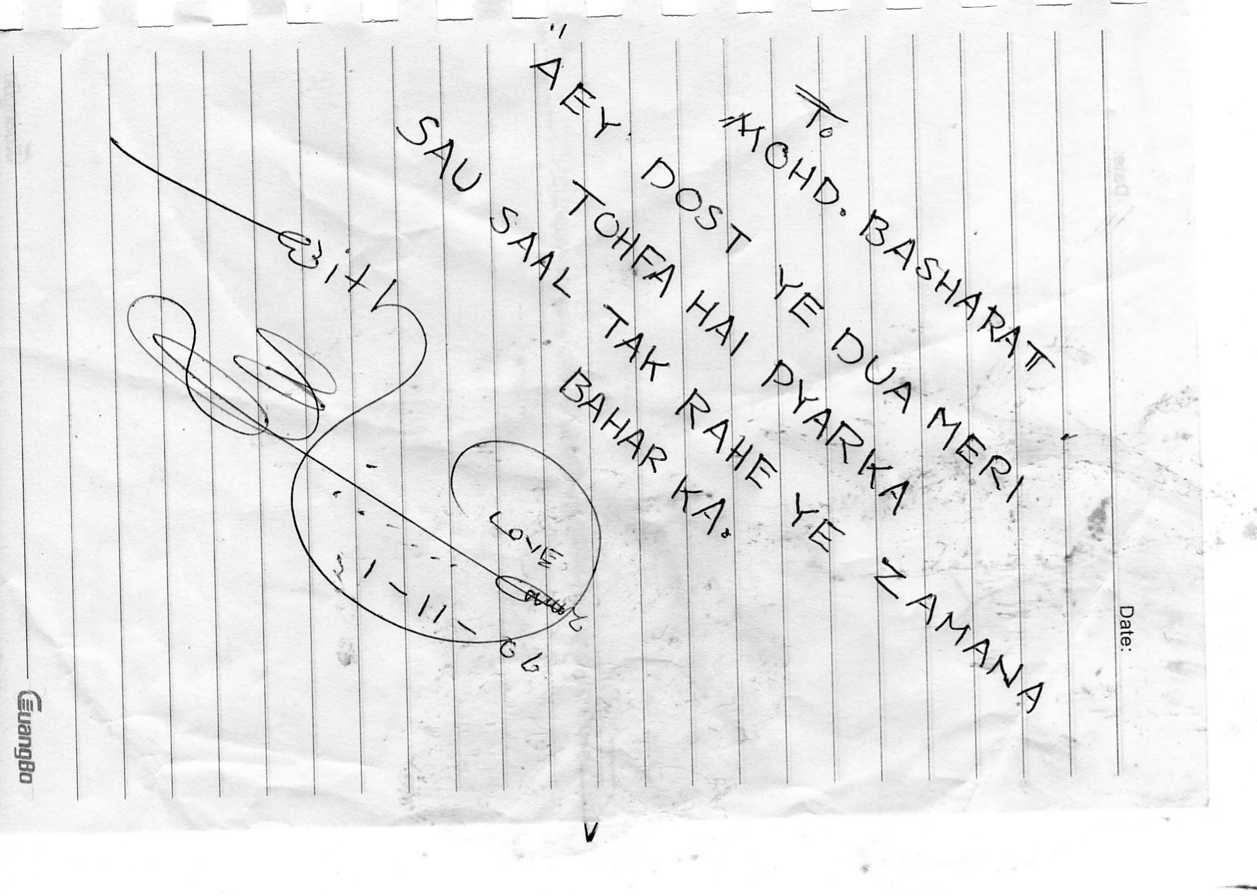 Date:
To
MOHD. BASHARAT
"AEY DOST YE DUA MERI
TOHFA HAI PYARKA
SAU SAAL TAK RAHE YE ZAMANA
BAHAR KA.
With
LOVE
21-11-06
GuangBo